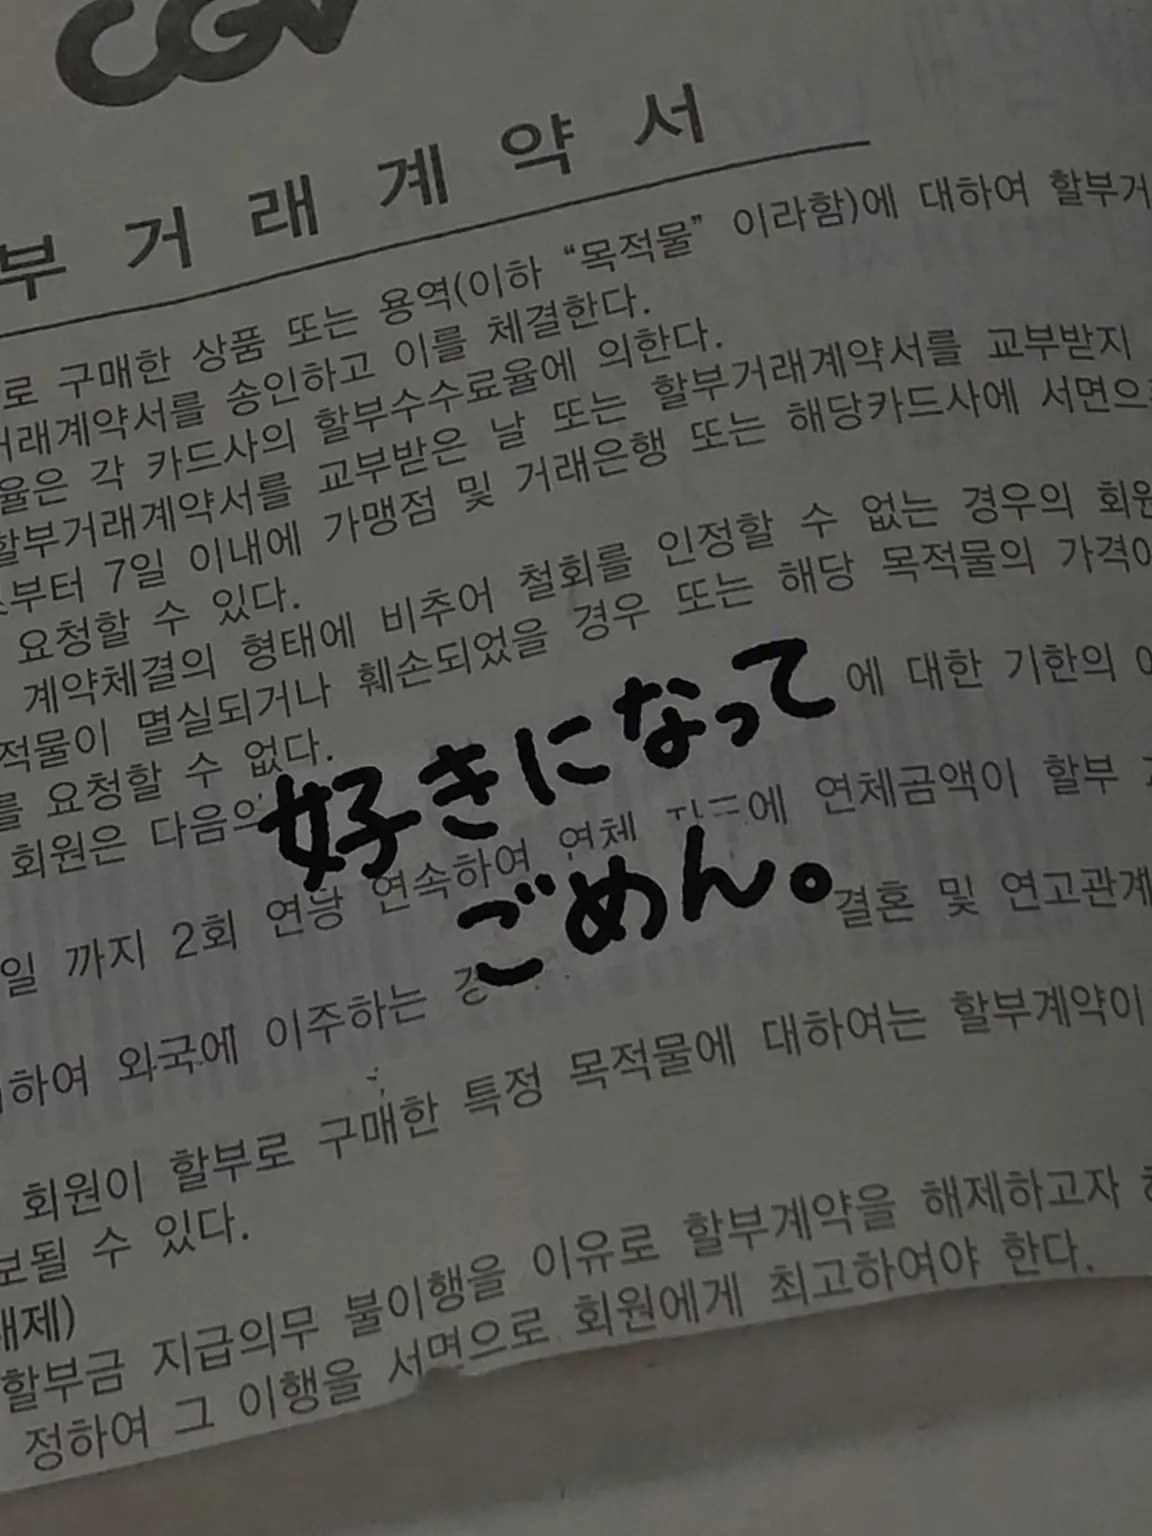 CGV
부 거 래 계 약 서
로 구매한 상품 또는 용역(이하 “목적물” 이라함)에 대하여 할부거
거래계약서를 송인하고 이를 체결한다.
율은 각 카드사의 할부수수료율에 의한다.
할부거래계약서를 교부받은 날 또는 할부거래계약서를 교부받지
부터 7일 이내에 가맹점 및 거래은행 또는 해당카드사에 서면으로
요청할 수 있다.
계약체결의 형태에 비추어 철회를 인정할 수 없는 경우의 회원
적물이 멸실되거나 훼손되었을 경우 또는 해당 목적물의 가격이
를 요청할 수 없다.
회원은 다음의 에 대한 기한의
好きになって
ごめん。
일 까지 2회 연속하여 연체 에 연체금액이 할부
하여 외국에 이주하는 결혼 및 연고관계
회원이 할부로 구매한 특정 목적물에 대하여는 할부계약이
보될 수 있다.
해제)
할부금 지급의무 불이행을 이유로 할부계약을 해제하고자
정하여 그 이행을 서면으로 회원에게 최고하여야 한다.